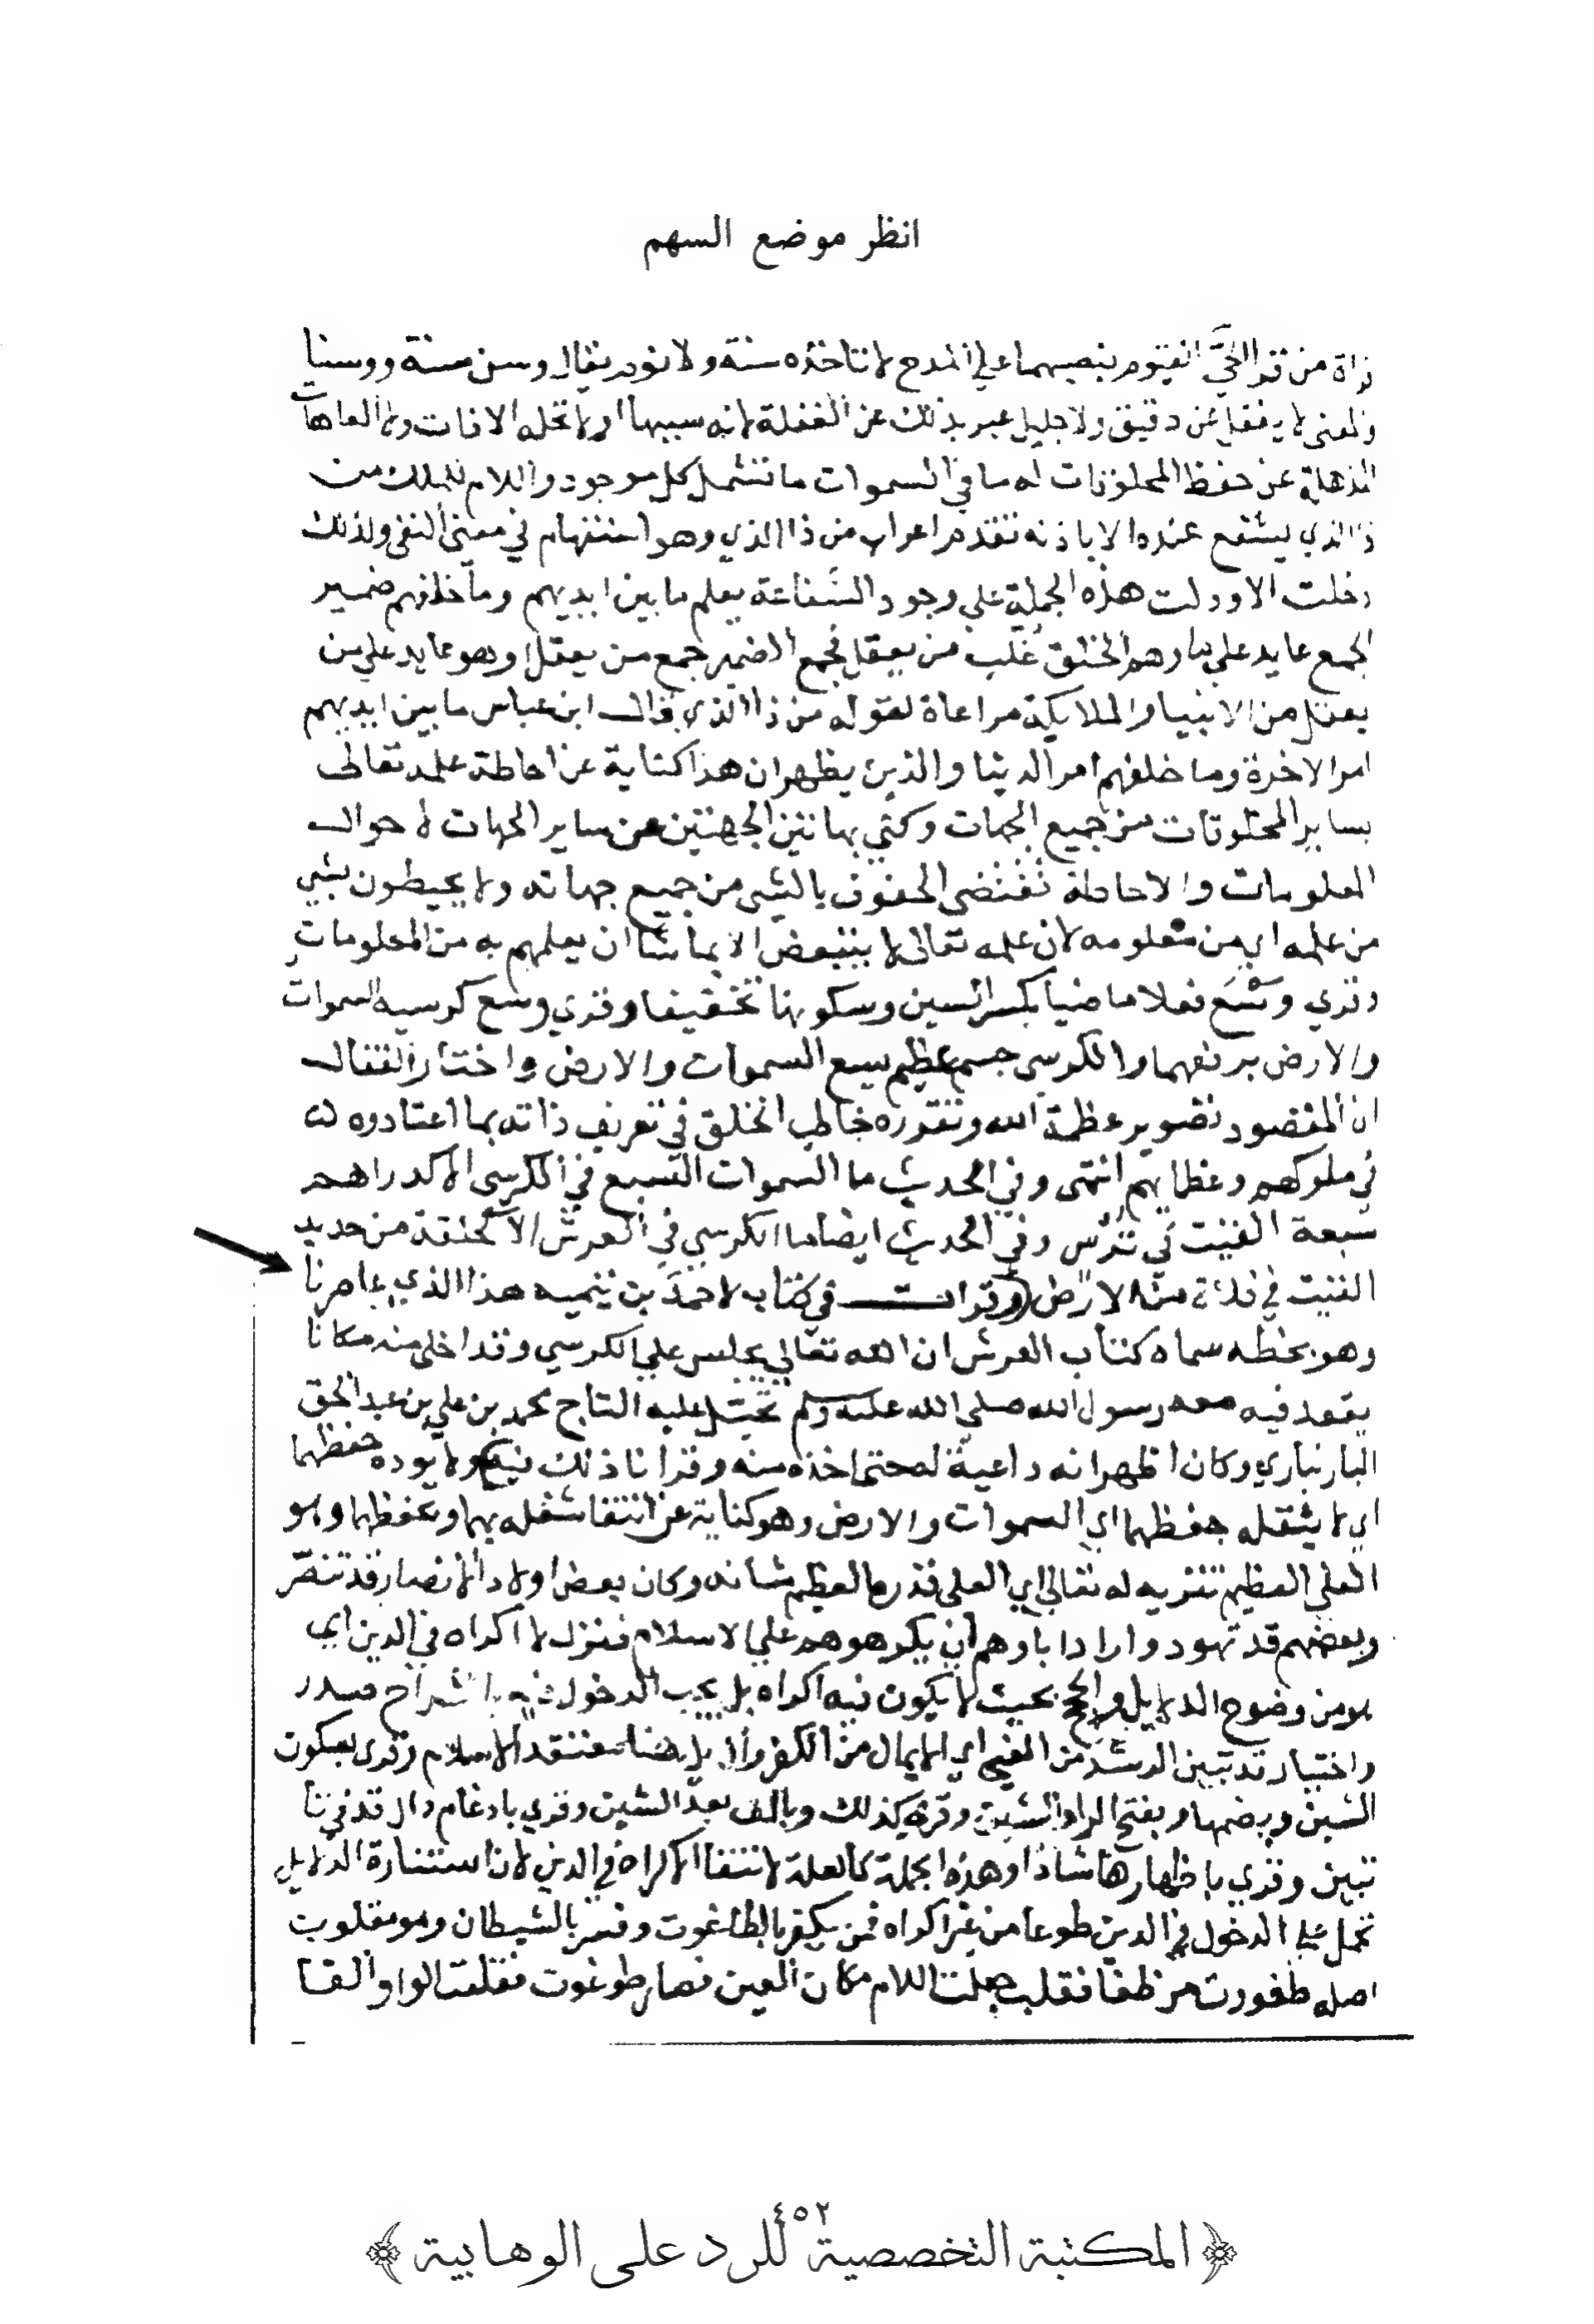 انظر موضع السهم
من قرا الحي القيوم بنصبهما علي المدح لا تاخذه سنة ولا نوم يقال وسن سنة ووسنا
والمعنى لا يغفل عن دقيق ولا جليل عبر بذلك عن الغفلة لانه سببها او لا تحله الافات ولا العاهات
المذهلة عن حفظ المخلوقات له ما في السموات ما تشمل كل موجود واللام للملك من
ذا الذي يشفع عنده الا باذنه تقدم اعراب من ذا الذي وهو استفهام في معنى النفي ولذلك
دخلت الا ودلت هذه الجملة علي وجود الشفاعة يعلم ما بين ايديهم وما خلفهم ضمير
الجمع عايد علي ما وهم الخلق غلب من يعقل فجمع الضمير جمع من يعقل او هو عايد علي من
يعقل من الانبيا والملايكة مراعاة لقوله من ذا الذي قال ابن عباس ما بين ايديهم
امر الاخرة وما خلفهم امر الدنيا والذي يظهر ان هذا كناية عن احاطة علمه تعالى
بساير المخلوقات من جميع الجهات وكني بهاتين الجهتين عن ساير الجهات لاحوال
المعلومات والاحاطة تقتضي الحفوف بالشي من جميع جهاته ولا يحيطون بشي
من علمه اي من معلومه لان علمه تعالى لا يتبعض الا بما شا ان يعلمهم به من المعلومات
وقري وسع فعلا ماضيا بكسر السين وسكونها تخفيفا وقري وسع كرسيه السموات
والارض برفعهما والكرسي جسم عظيم يسع السموات والارض واختار القفال
ان المقصود تصوير عظمة الله وتقدره خاطب الخلق في تعريف ذاته بما اعتادوه
في ملوكهم وعظمايهم انتهى وفي الحديث ما السموات السبع في الكرسي الا كدراهم
سبعة القيت في ترس وفي الحديث ايضا ما الكرسي في العرش الا كحلقة من حديد
القيت في فلاة من الارض وقرات في كتاب لاحمد بن تيميه هذا الذي عاصرنا
وهو بخطه سماه كتاب العرش ان الله تعالي يجلس علي الكرسي وقد اخلى منه مكانا
يقعد فيه معه رسول الله صلي الله عليه وسلم تحيل عليه التاج محمد بن علي بن عبد الحق
البارنباري وكان اظهر انه داعية له حتى اخذه منه وقرانا ذلك فيه ولا يوده حفظهما
اي لا يثقله حفظهما اي السموات والارض وهو كناية عن انتفا شغله بهما وبحفظهما وهو
العلي العظيم تنزيه له تعالي اي العلي قدره العظيم شانه وكان بعض اولاد الانصار قد تنصر
وبعضهم قد تهود واراد اباوهم ان يكرهوهم علي الاسلام فنزل لا اكراه في الدين اي
من وضوح الدلايل والحجج بحيث لا يكون فيه اكراه بل يجب الدخول فيه بانشراح صدر
واختيار قد تبين الرشد من الغي اي الايمان من الكفر معتقد الاسلام وقري بسكون
الشين وبضمها وبفتح الرا والشين وقري كذلك وبالف بعد الشين وقري بادغام دال قد في تا
تبين وقري باظهارها شاذا وهذه الجملة كالعلة لانتفا الاكراه في الدين لان استنارة الدلايل
تحمل علي الدخول في الدين طوعا من غير اكراه فمن يكفر بالطاغوت وفسر بالشيطان وهو مقلوب
اصله طغووت من طغا فقلب جعلت اللام مكان العين فصار طوغوت فقلبت الواو الفا
٤٥٢
المكتبة التخصصية للرد على الوهابية